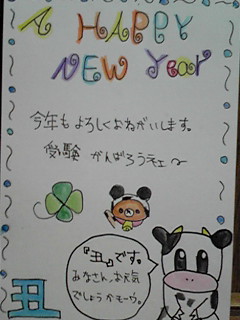 A HAPPY
NEW Year
今年もよろしくおねがいします。
受験 がんばろうネェ〜
『丑』です。
みなさん、お元気
でしょうかモーウ。
丑